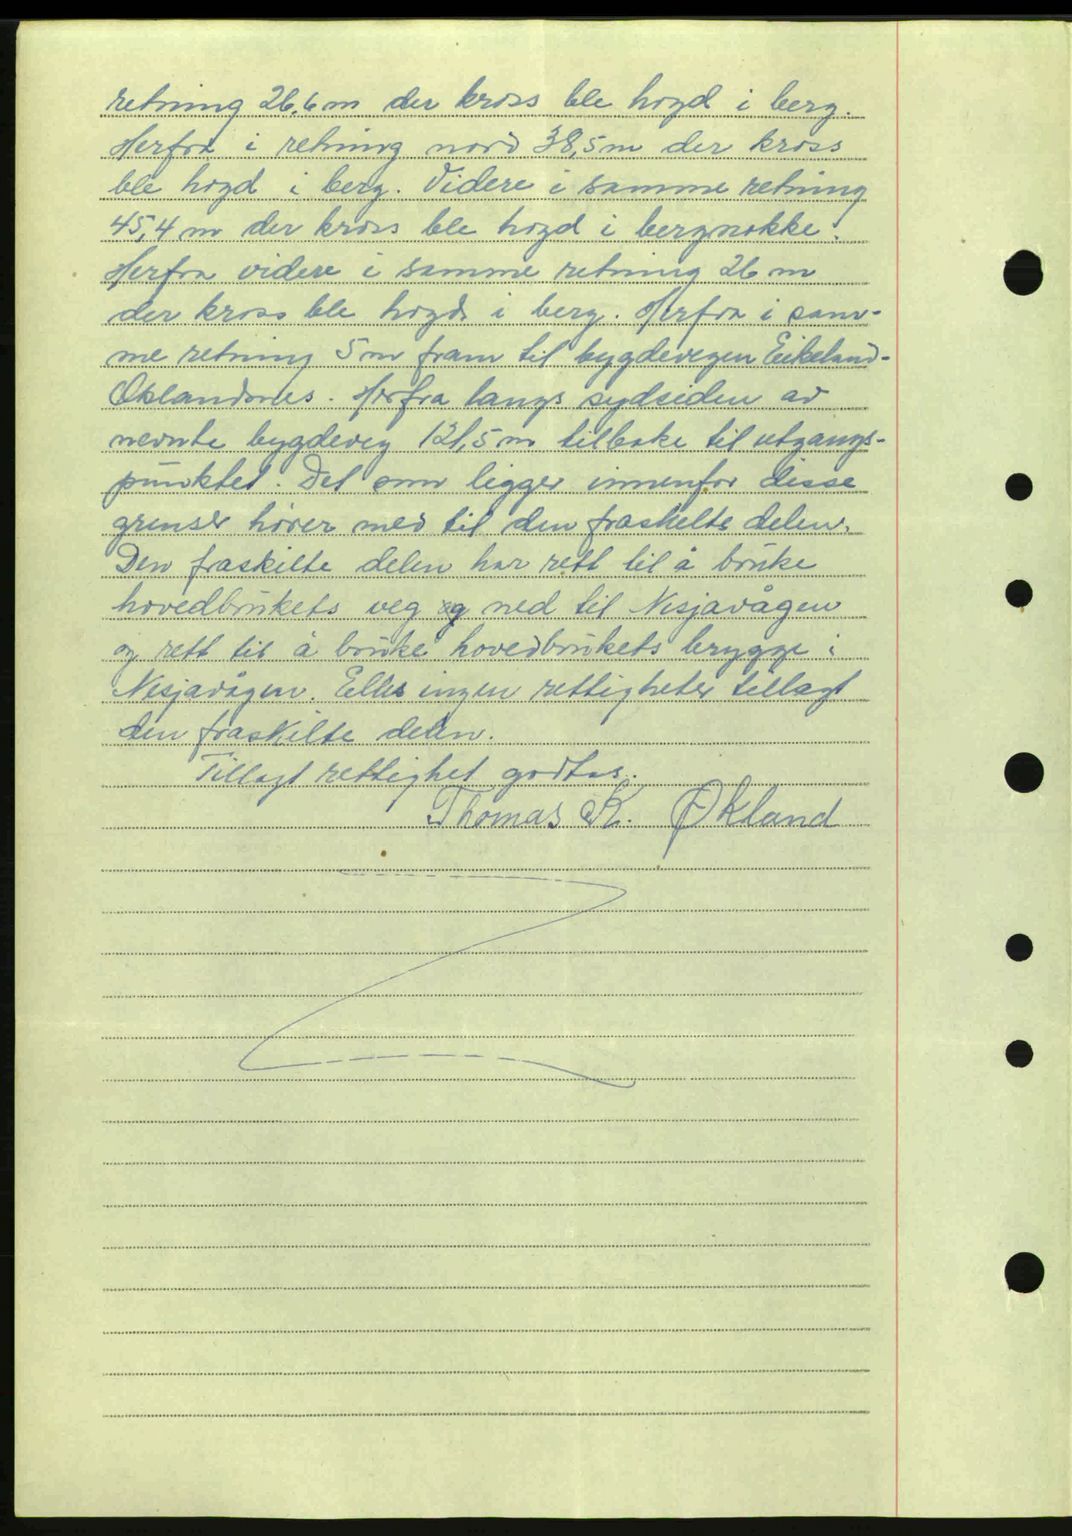 retning 26,6 m der kross ble hogd i berg.
Herfra i retning nord 38,5 m der kross
ble hogd i berg. Videre i samme retning
45,4 m der kross ble hogd i bergnokke.
Herfra videre i samme retning 26 m
der kross ble hogd i berg. Herfra i sam-
me retning 5 m fram til bygdevegen Eikeland-
Øklandsnes. Herfra langs sydsiden av
nevnte bygdeveg 121,5 m tilbake til utgangs-
punktet. Det som ligger innenfor disse
grenser hører med til den fraskilte delen.
Den fraskilte delen har rett til å bruke
hovedbrukets veg ned til Nesjavågen
og rett til å bruke hovedbrukets brygge i
Nesjavågen. Elles ingen rettigheter tillagt
den fraskilte delen.
Tillagt rettighet godtas.
Thomas K. Økland